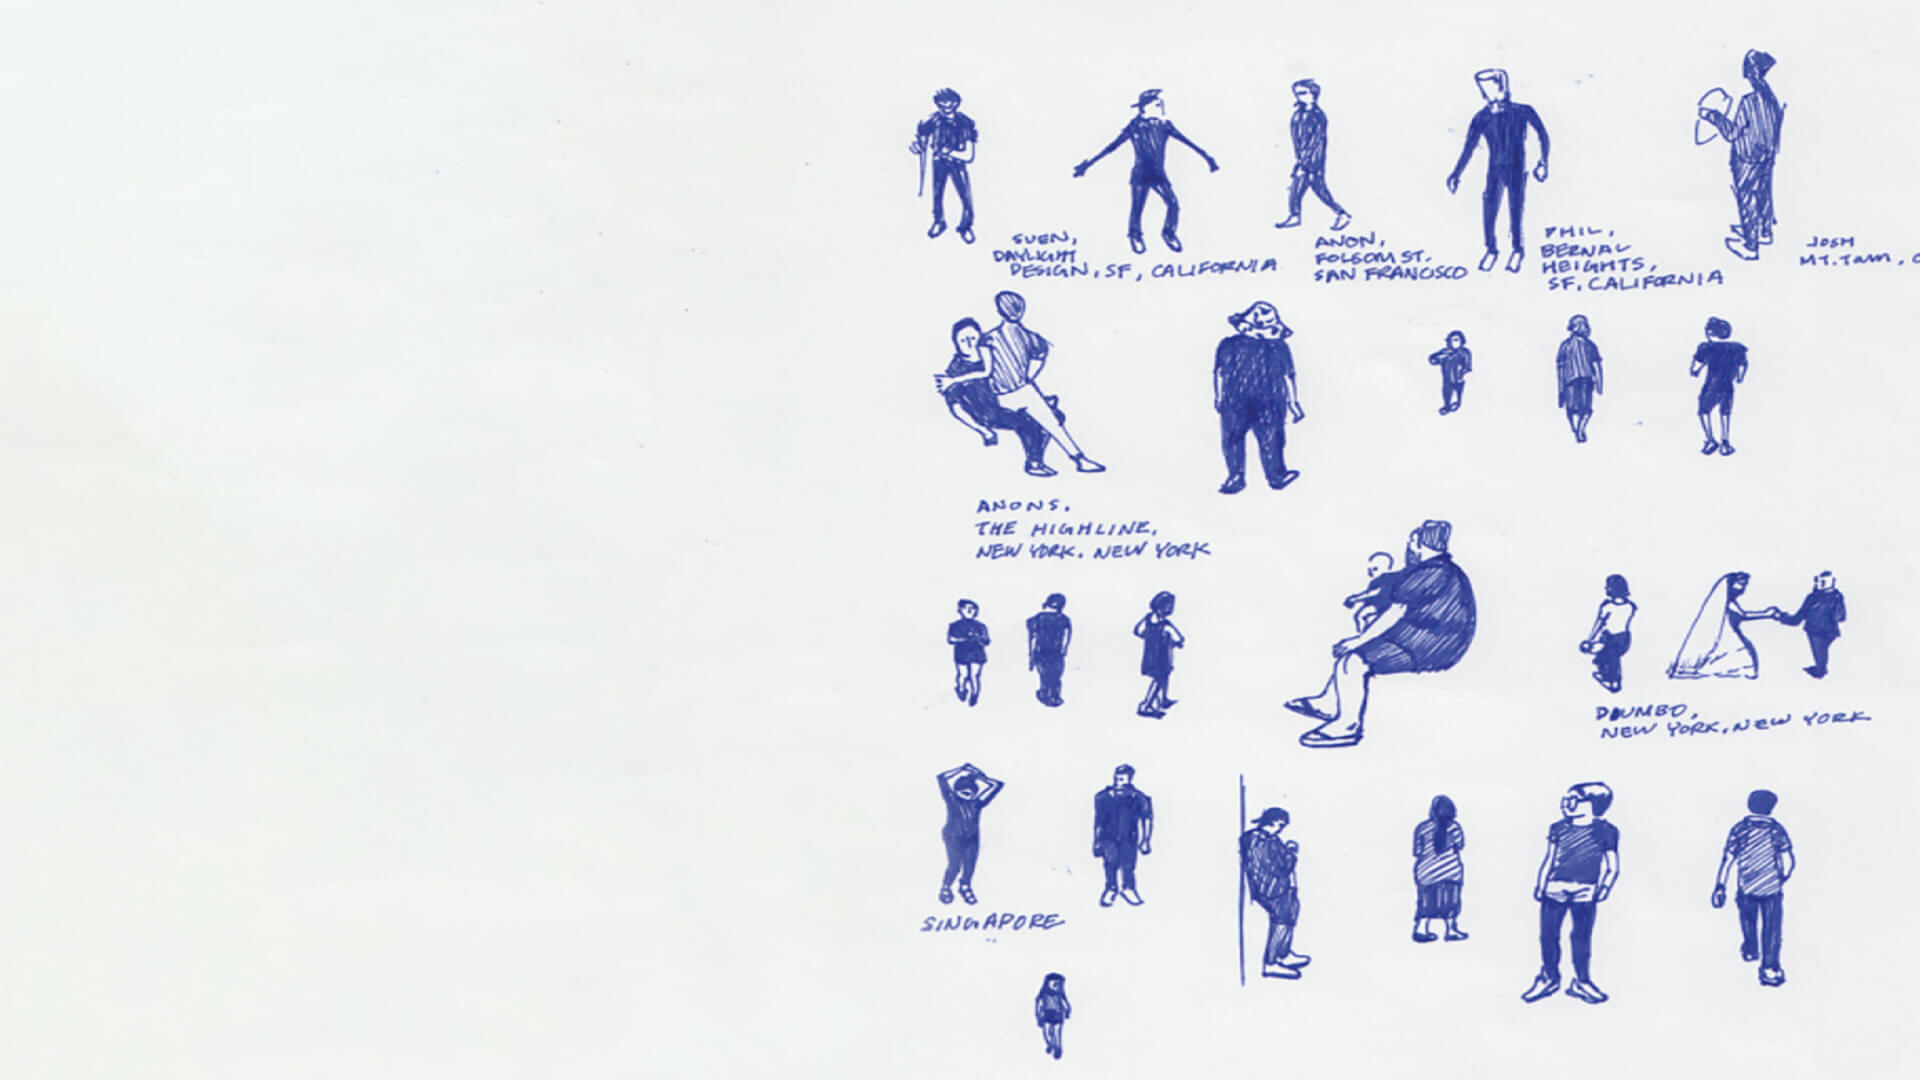 SVEN,
DAYLIGHT
DESIGN, SF, CALIFORNIA
ANON,
FOLSOM ST.
SAN FRANCISCO
PHIL,
BERNAL
HEIGHTS,
SF, CALIFORNIA
JOSH
MT. TAM, C
ANONS,
THE HIGHLINE,
NEW YORK, NEW YORK
DUMBO,
NEW YORK, NEW YORK
SINGAPORE